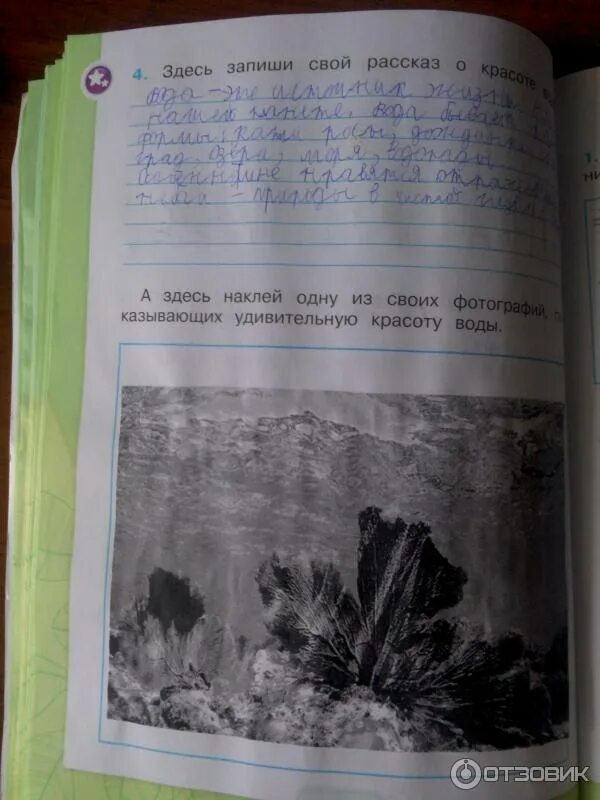 4. Здесь запиши свой рассказ о красоте
Вода - это источник жизни
нашей планете. Вода бывает
формы: капли росы, дождинка
град, озёра, моря, водопады
Особенно мне нравятся отражен
неба - природы в чистой
А здесь наклей одну из своих фотографий,
казывающих удивительную красоту воды.
1.
ни
ОТЗОВИК